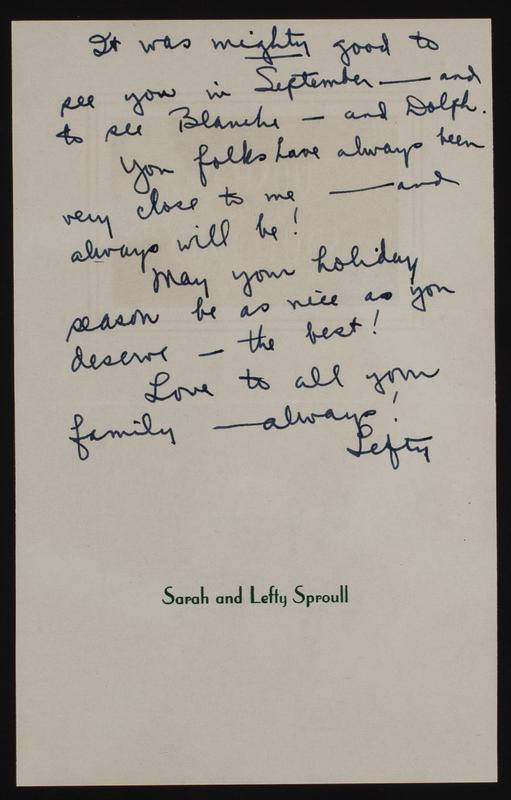 It was mighty good to
see you in September — and
to see Blanche — and Dolph.
You folks have always been
very close to me — and
always will be!
May your holiday
season be as nice as you
deserve — the best!
Love to all your
family — always!
Lefty
Sarah and Lefty Sproull